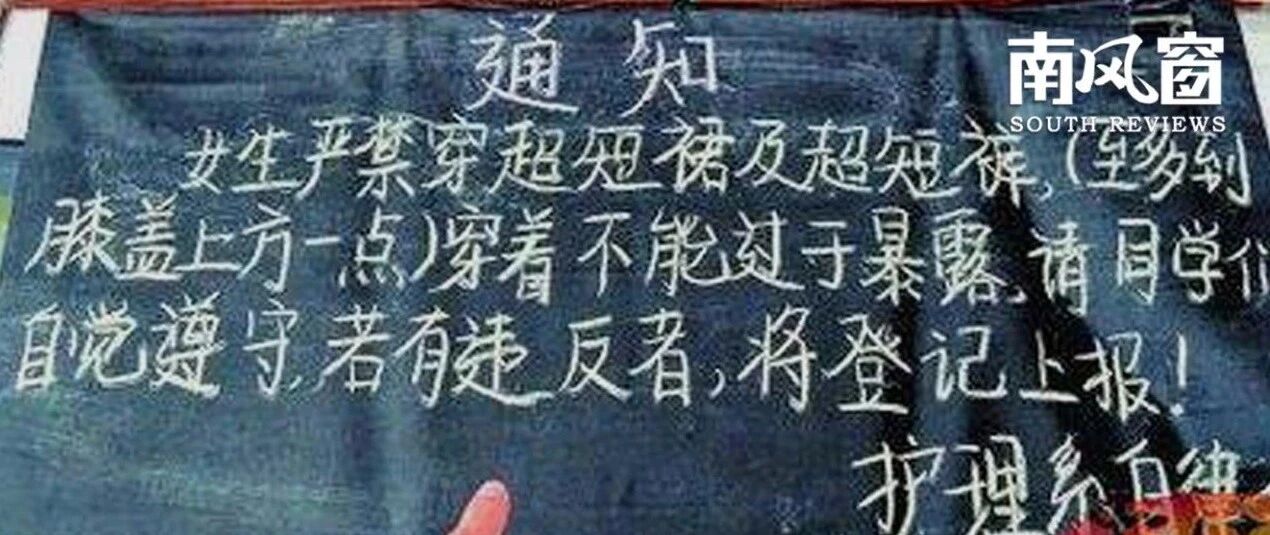 南风窗
SOUTH REVIEWS
通知
女生严禁穿超短裙及超短裤,(至多到
膝盖上方一点)穿着不能过于暴露,请同学们
自觉遵守,若有违反者,将登记上报!
护理系自律